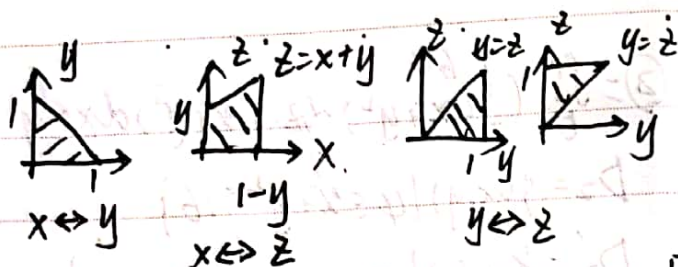 y
1
1
x↔y
z
z=x+y
y
x
1-y
x↔z
z
y=z
1
y
z
y=z
1
y
y↔z